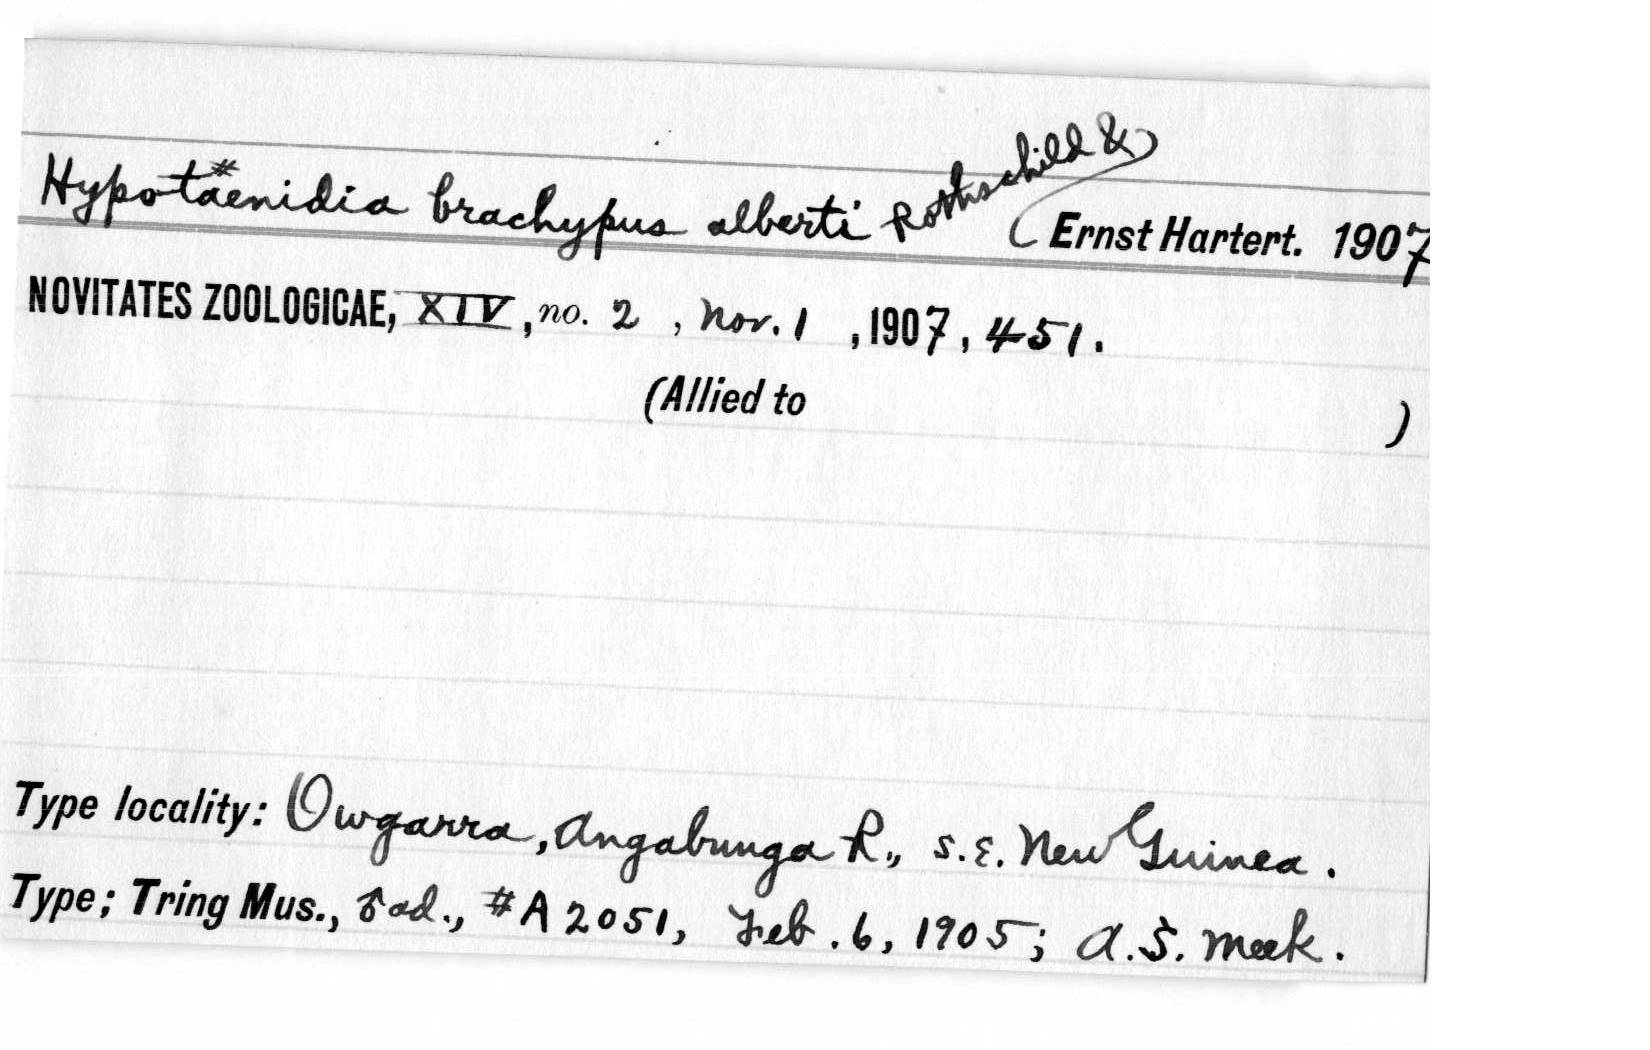 Hypotaenidia brachypus alberti Rothschild & Ernst Hartert. 1907
NOVITATES ZOOLOGICAE, XIV, no. 2, Nov. 1, 1907, 451.
(Allied to )
Type locality: Owgarra, Angabunga R., S.E. New Guinea.
Type; Tring Mus., ♂ ad., #A2051, Feb. 6, 1905; A.S. Meek.